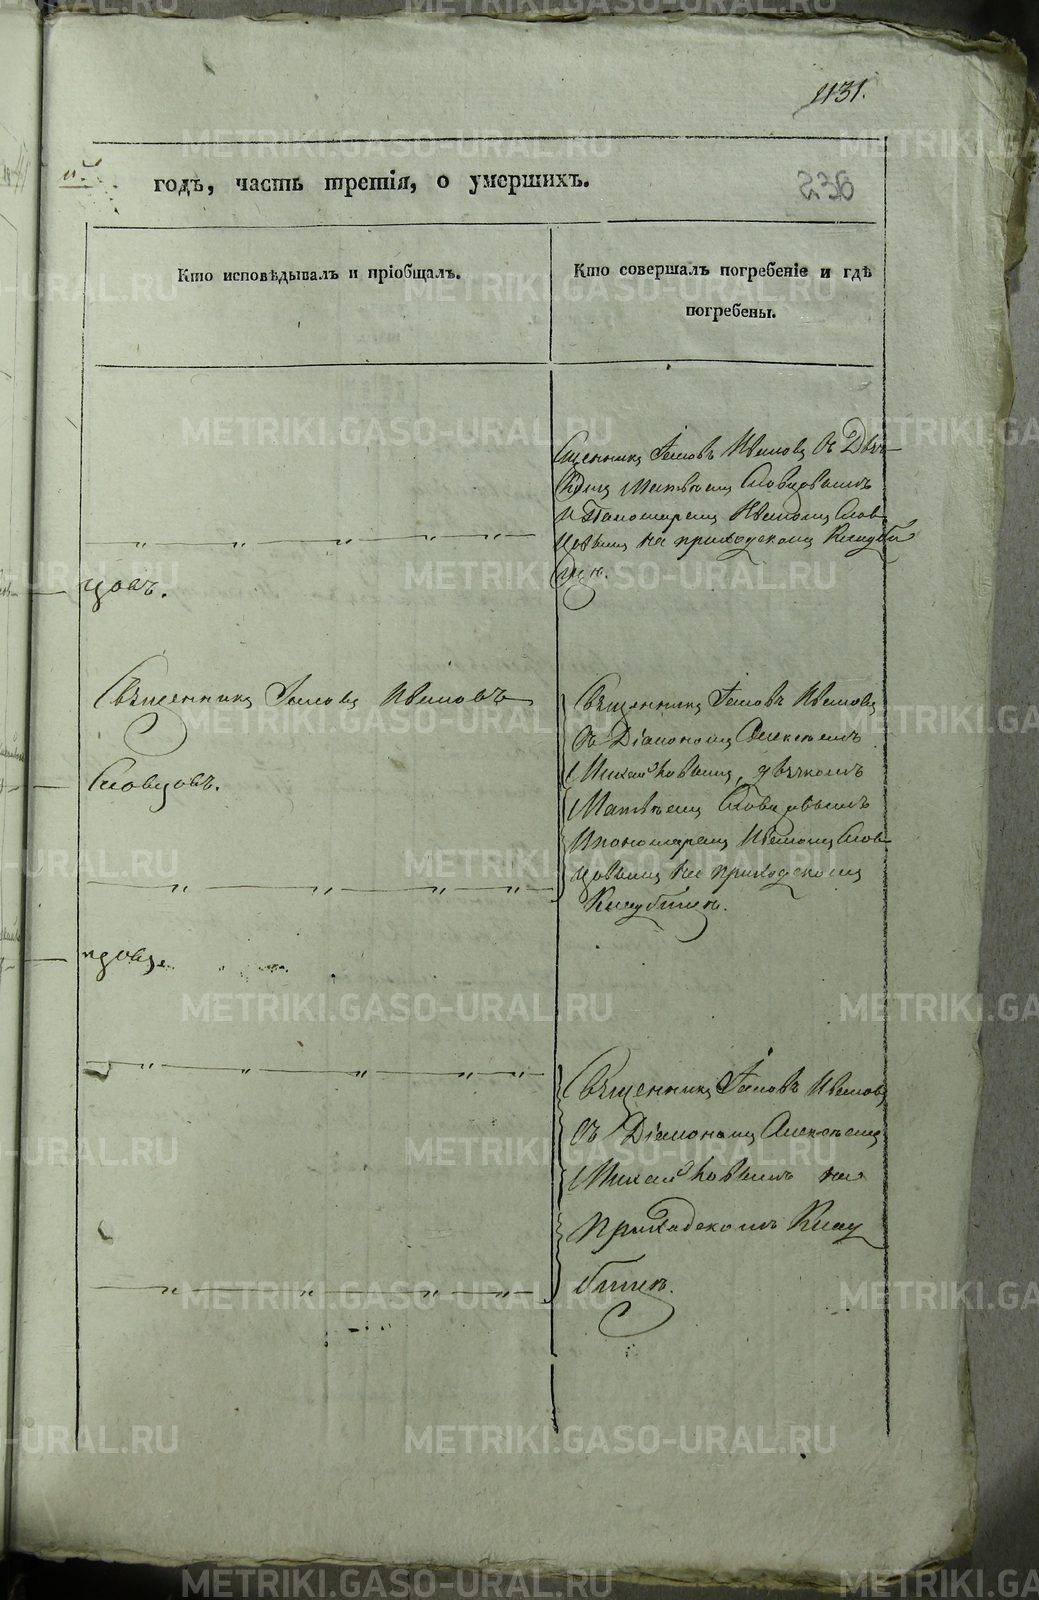 1131.
годъ, часть третія, о умершихъ.
Кто исповѣдывалъ и пріобщалъ.
Кто совершалъ погребеніе и гдѣ
погребены.
Іаковъ Ивановъ съ Дьяч-
комъ Матвѣемъ Словцовымъ
и Пономаремъ Иваномъ Слов-
цовымъ на приходскомъ Кладби
щѣ.
цовъ.
Священникъ Іаковъ Ивановъ
Словцовъ.
Священникъ Іаковъ Ивановъ
съ Діакономъ Алексѣемъ
дьячкомъ
Матвѣемъ Словцовымъ
и пономаремъ Иваномъ Слов-
цовымъ на приходскомъ
Кладбищѣ.
Священникъ Іаковъ Ивановъ
съ Діакономъ Алексѣемъ
на
Приходскомъ Клад
бищѣ.
METRIKI.GASO-URAL.RU